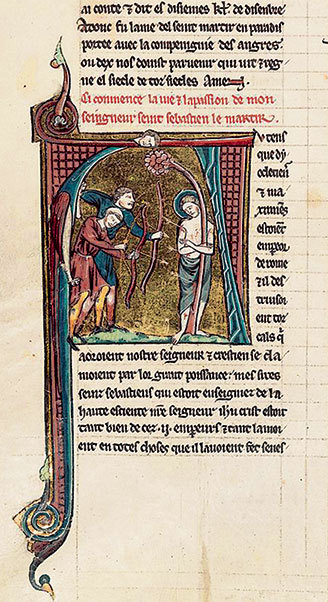 ai conte & dit el disiemes kl'. de disenbre
adonc fu lame del seint martir en paradis
portee auec la compeignie des angres.
ou dex nos doinst paruenir qui uit & reg
ne el siecle de tor siecles Amen
Ci commence la uie & la passion de mon
seingneur seint sebastien le martir.
V tens
que dy
ocletien
& ma
ximiens
estoient
emperor
de rome
& il des
truisoi
ent tor
cals q'
aoroient nostre seigneur & crestien se cla
moient par lor grant poissance. mes sires
seinz sebastiens qui estoit enseignez de la
haute escience nr̄e seigneur ihu crist estoit
tant bien de cez .ij. empereurs & tant lamoi
ent en totes choses que il lauoient fet